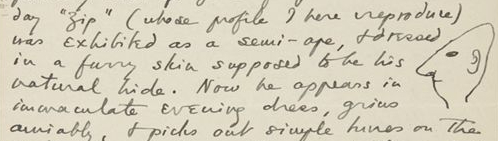 day "Zip" (whose profile I here reproduce)
was exhibited as a semi-ape, & dressed
in a furry skin supposed to be his
natural hide. Now he appears in
immaculate evening dress, grins
amiably, & picks out simple tunes on the